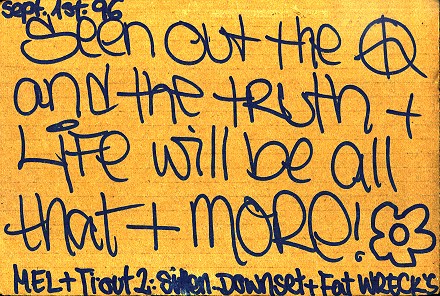 Sept. 1st. 96
Seen out the
and the truth +
Life will be all
that + MORE!
MEL + Trout 2: Sitten-Downset + Fat WRECK'S